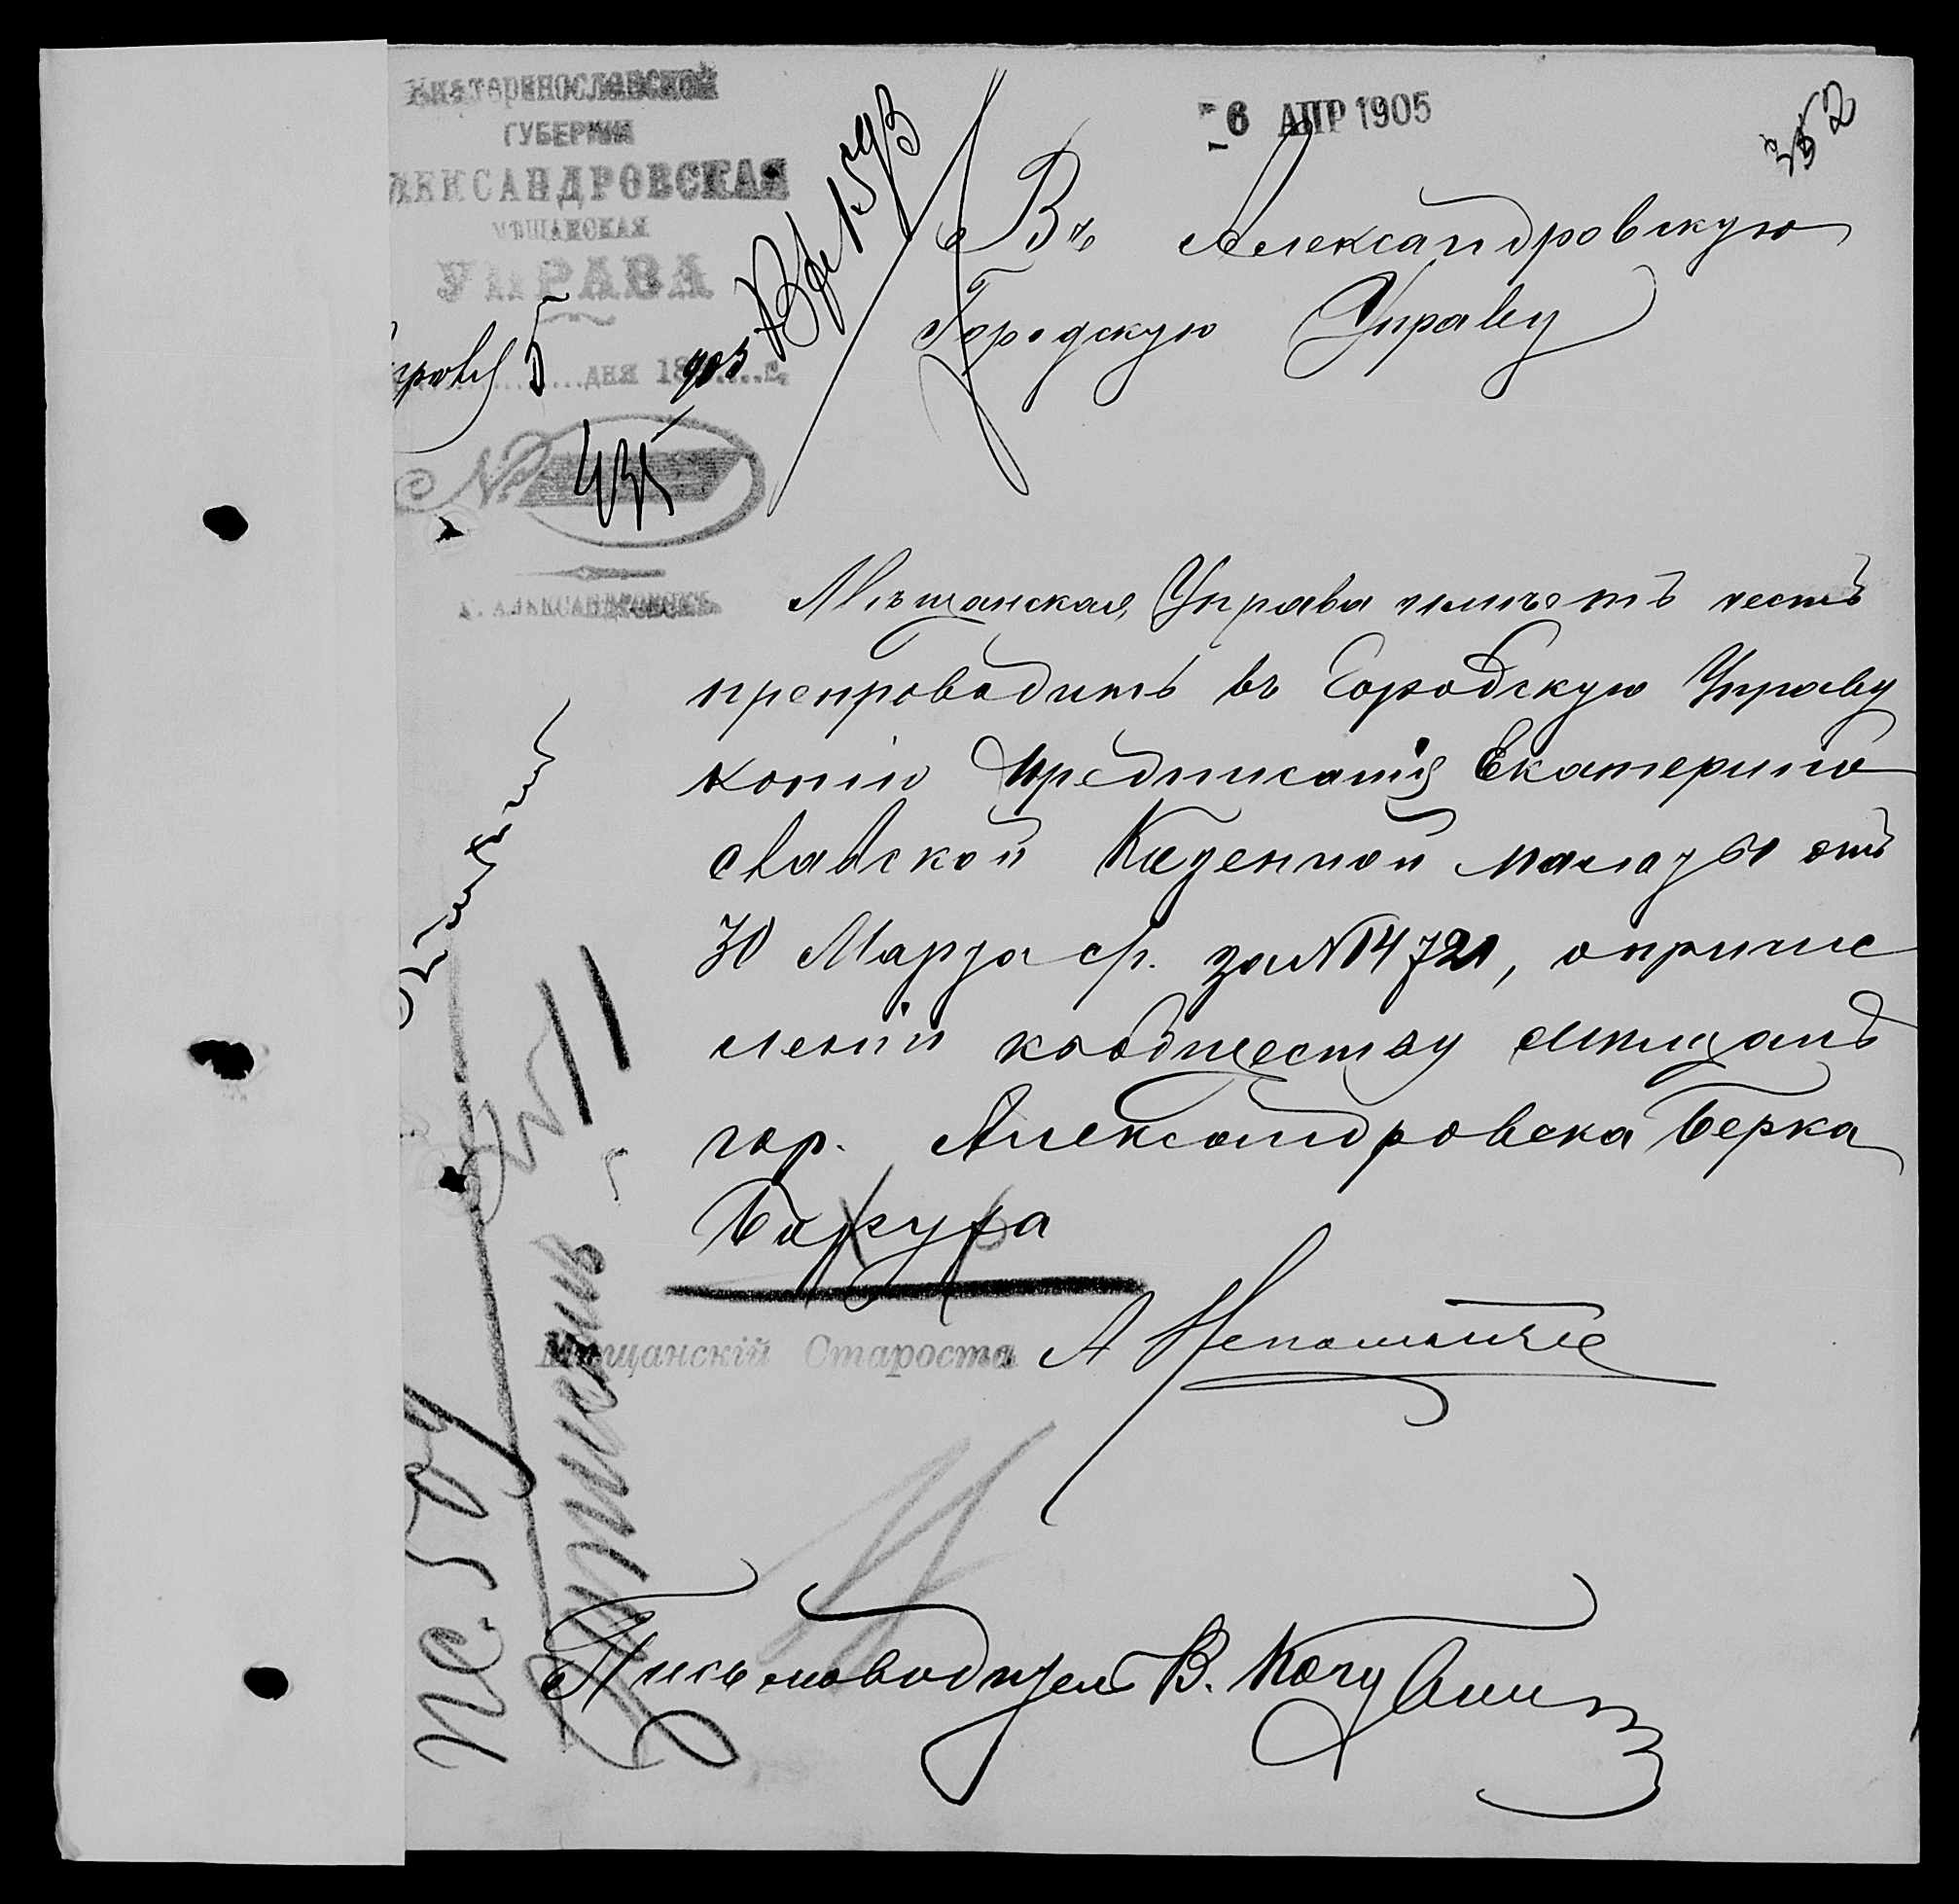 Екатеринославской
ГУБЕРНІИ
АЛЕКСАНДРОВСКАЯ
МѢЩАНСКАЯ
УПРАВА
5 дня 1905 г.
№ 435
Г. АЛЕКСАНДРОВСКЪ.
Вх 1593
6 АПР 1905
352
Въ Александровскую
Городскую Управу
Мѣщанская Управа имѣетъ честь
препроводить въ Городскую Управу
копію предписанія Екатерино
славской Казенной палаты отъ
30 Марта с/г. за №14721, о причис
леніи къ обществу мѣщанъ
гор. Александровска Берка
Мѣщанскій Староста А
Письмоводитель В.
ис. 509